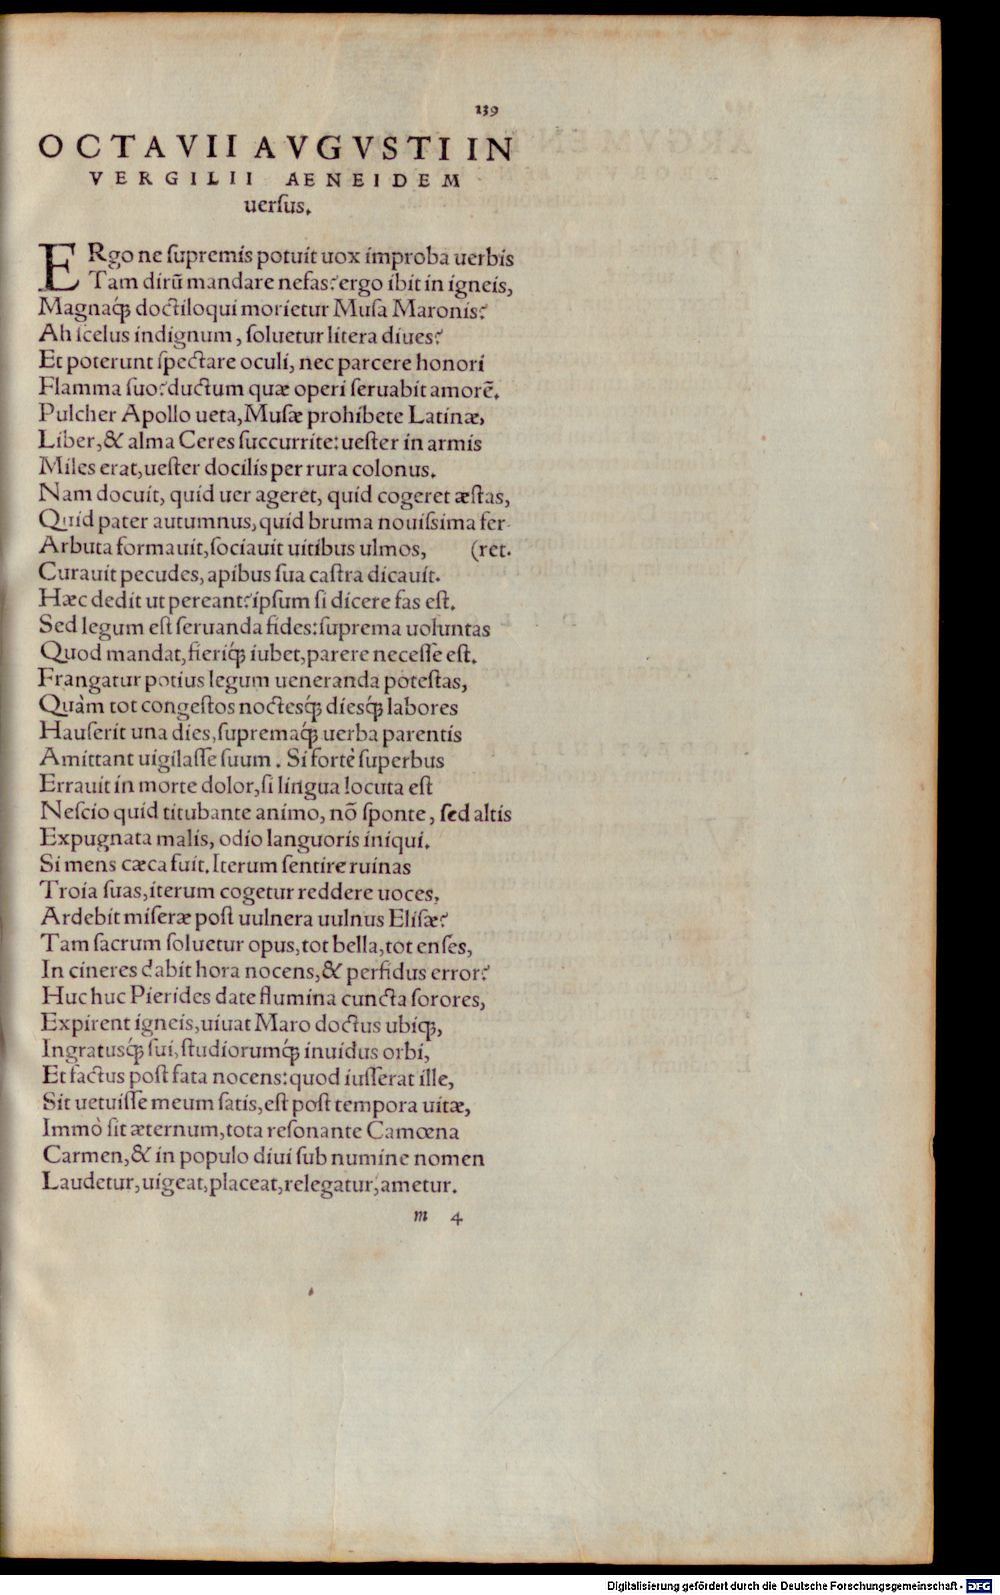 139
OCTAVII AVGVSTI IN
VERGILII AENEIDEM
uerſus.
ERgo ne ſupremis potuit uox improba uerbis
Tam dirū mandare nefas? ergo ibit in igneis,
Magnaq́; doctiloqui morietur Muſa Maronis?
Ah ſcelus indignum, ſoluetur litera diues?
Et poterunt ſpectare oculi, nec parcere honori
Flamma ſuo? ductum quæ operi ſeruabit amorē.
Pulcher Apollo ueta, Muſæ prohibete Latinæ,
Liber, & alma Ceres ſuccurrite: ueſter in armis
Miles erat, ueſter docilis per rura colonus.
Nam docuit, quid uer ageret, quid cogeret æſtas,
Quid pater autumnus, quid bruma nouiſsima fer-
Arbuta formauit, ſociauit uitibus ulmos, (ret.
Curauit pecudes, apibus ſua caſtra dicauit.
Hæc dedit ut pereant? ipſum ſi dicere fas eſt.
Sed legum eſt ſeruanda fides: ſuprema uoluntas
Quod mandat, fieriq́; iubet, parere neceſſe eſt.
Frangatur potius legum ueneranda poteſtas,
Quàm tot congeſtos nocteſq́; dieſq́; labores
Hauſerit una dies, ſupremaq́; uerba parentis
Amittant uigilaſſe ſuum. Si fortè ſuperbus
Errauit in morte dolor, ſi lingua locuta eſt
Neſcio quid titubante animo, nō ſponte, ſed altis
Expugnata malis, odio languoris iniqui.
Si mens cæca fuit. Iterum ſentire ruinas
Troia ſuas, iterum cogetur reddere uoces,
Ardebit miſeræ poſt uulnera uulnus Eliſæ?
Tam ſacrum ſoluetur opus, tot bella, tot enſes,
In cineres dabit hora nocens, & perfidus error?
Huc huc Pierides date flumina cuncta ſorores,
Expirent igneis, uiuat Maro doctus ubiq;,
Ingratuſq́; ſui, ſtudiorumq́; inuidus orbi,
Et factus poſt fata nocens: quod iuſſerat ille,
Sit uetuiſſe meum ſatis, eſt poſt tempora uitæ,
Immò ſit æternum, tota reſonante Camœna
Carmen, & in populo diui ſub numine nomen
Laudetur, uigeat, placeat, relegatur, ametur.
m 4
Digitalisierung gefördert durch die Deutsche Forschungsgemeinschaft - DFG